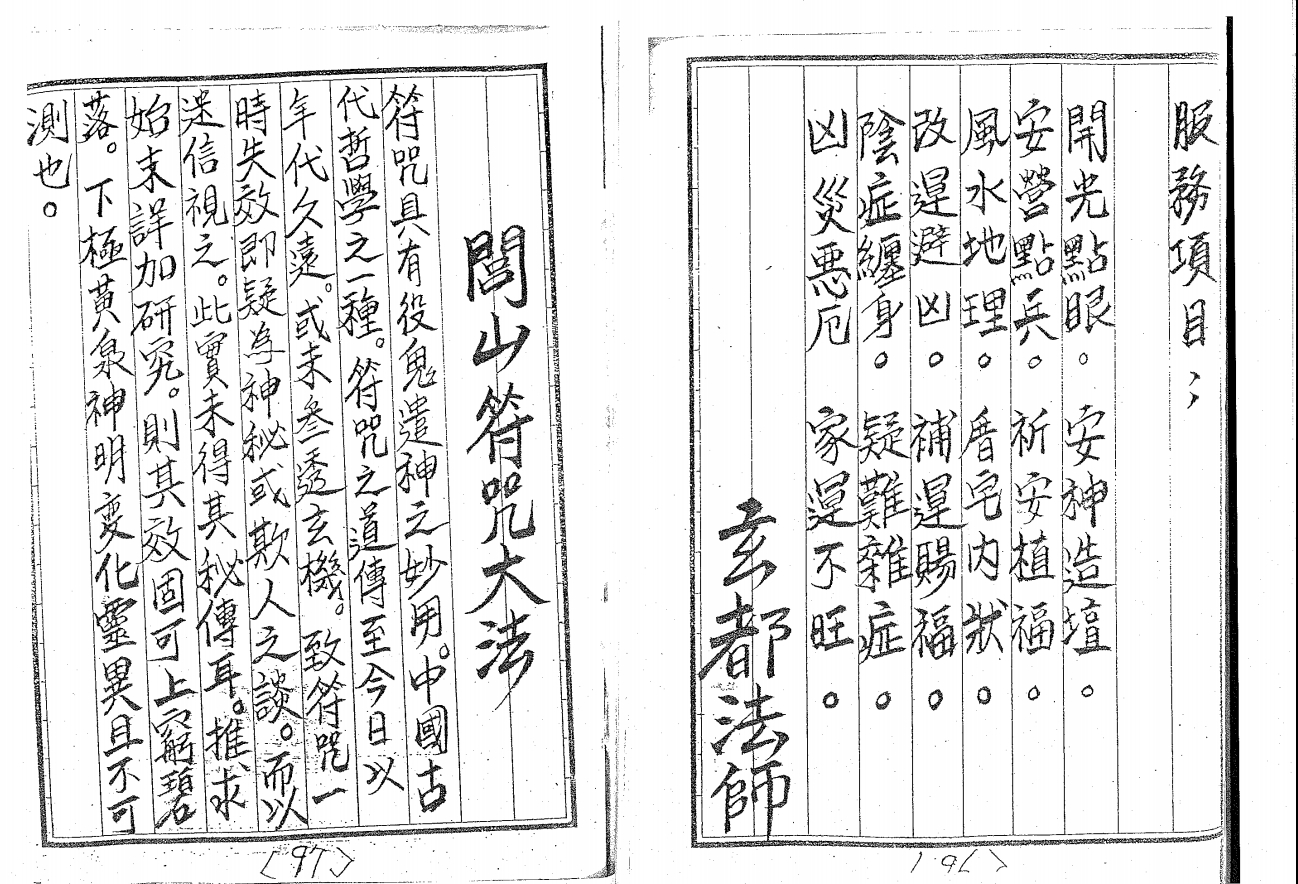 服務項目；
開光點眼。安神造壇。
安營點兵。祈安植福。
風水地理。厝宅內狀。
改運避凶。補運賜福。
陰症纏身。疑難雜症。
凶災惡厄。家運不旺。
玄都法師
閭山符咒大法
符咒具有役鬼遣神之妙用。中國古
代哲學之一種。符咒之道傳至今日以
年代久遠。或未叄透玄機。致符咒一
時失效即疑為神秘或欺人之談。而以
迷信視之。此實未得其秘傳耳。推求
始末詳加研究。則其效固可上窮碧
落。下極黃泉神明変化靈異且不可
測也。
〈97〉